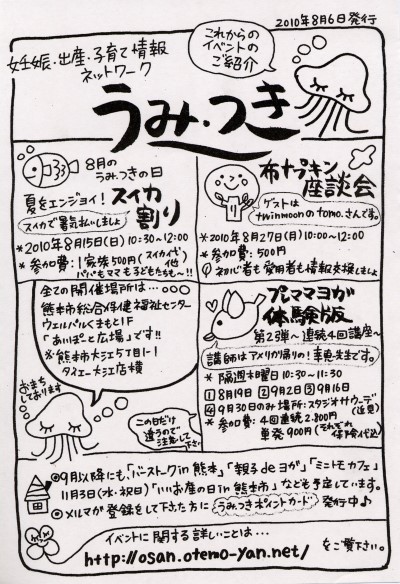 2010年8月6日発行
これからの
イベントの
ご紹介
妊娠・出産・子育て情報
ネットワーク
うみ・つき
8月の
うみ・つきの日
夏をエンジョイ!スイカ
割り
スイカで暑気払いしましょ
*2010年8月15日(日)10:30~12:00
*参加費:1家族500円(スイカ代他)
パパもママも子どもたちも~!!
布ナプキン
座談会
ゲストは
twinmoonのtomoさんです。
*2010年8月27日(月)10:00~12:00
*参加費:500円
初心者も愛用者も情報交換しましょ
全ての開催場所は・・・
熊本市総合保健福祉センター
ウェルパルくまもと1F
「あいぽっと広場」です!!
*熊本市大江5丁目1-1
ダイエー大江店横
おまち
しております
プレママヨガ
体験版
第2弾~連続4回講座~
講師はアメリカ帰りの!幸恵先生です。
*隔週木曜日10:30~11:30
①8月19日②9月2日③9月16日
④9月30日のみ場所:スタジオサウーデ(近見)
*参加費:4回連続2,800円
単発900円(それぞれ保険代込)
この日だけ
違うので
注意して
下さい
◎9月以降にも、「バーストークin熊本」「親子deヨガ」「ミニトモカフェ」
11月3日(水・祝日)「いいお産の日in熊本市」なども予定しています。
◎メルマガ登録をして下さった方に うみつきポイントカード 発行中♪
イベントに関する詳しいことは…
http://osan.otemo-yan.net/ をご覧下さい。